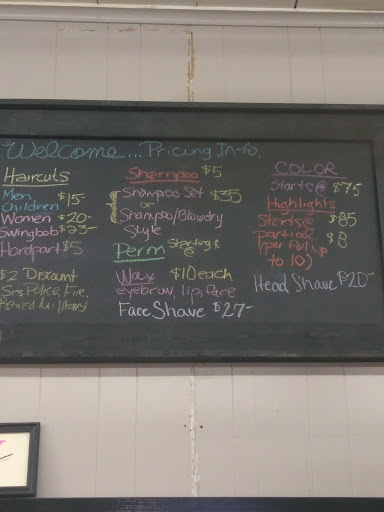 Welcome... Pricing Info.
Haircuts
Men $15-
Children
Women $20-
Swingbob $23-
Hardpart $5
$2 Discount
Snrs, Police, Fire,
Retired Military
Shampoo $5
Shampoo Set $35
or
Shampoo/Blowdry
Style
Perm Starting $
@
Wax $10 each
eyebrow, lip, face
Face Shave $27-
COLOR
Starts @ $75
Highlights
$85
partial $8
(per foil up
to 10)
Head Shave $20-